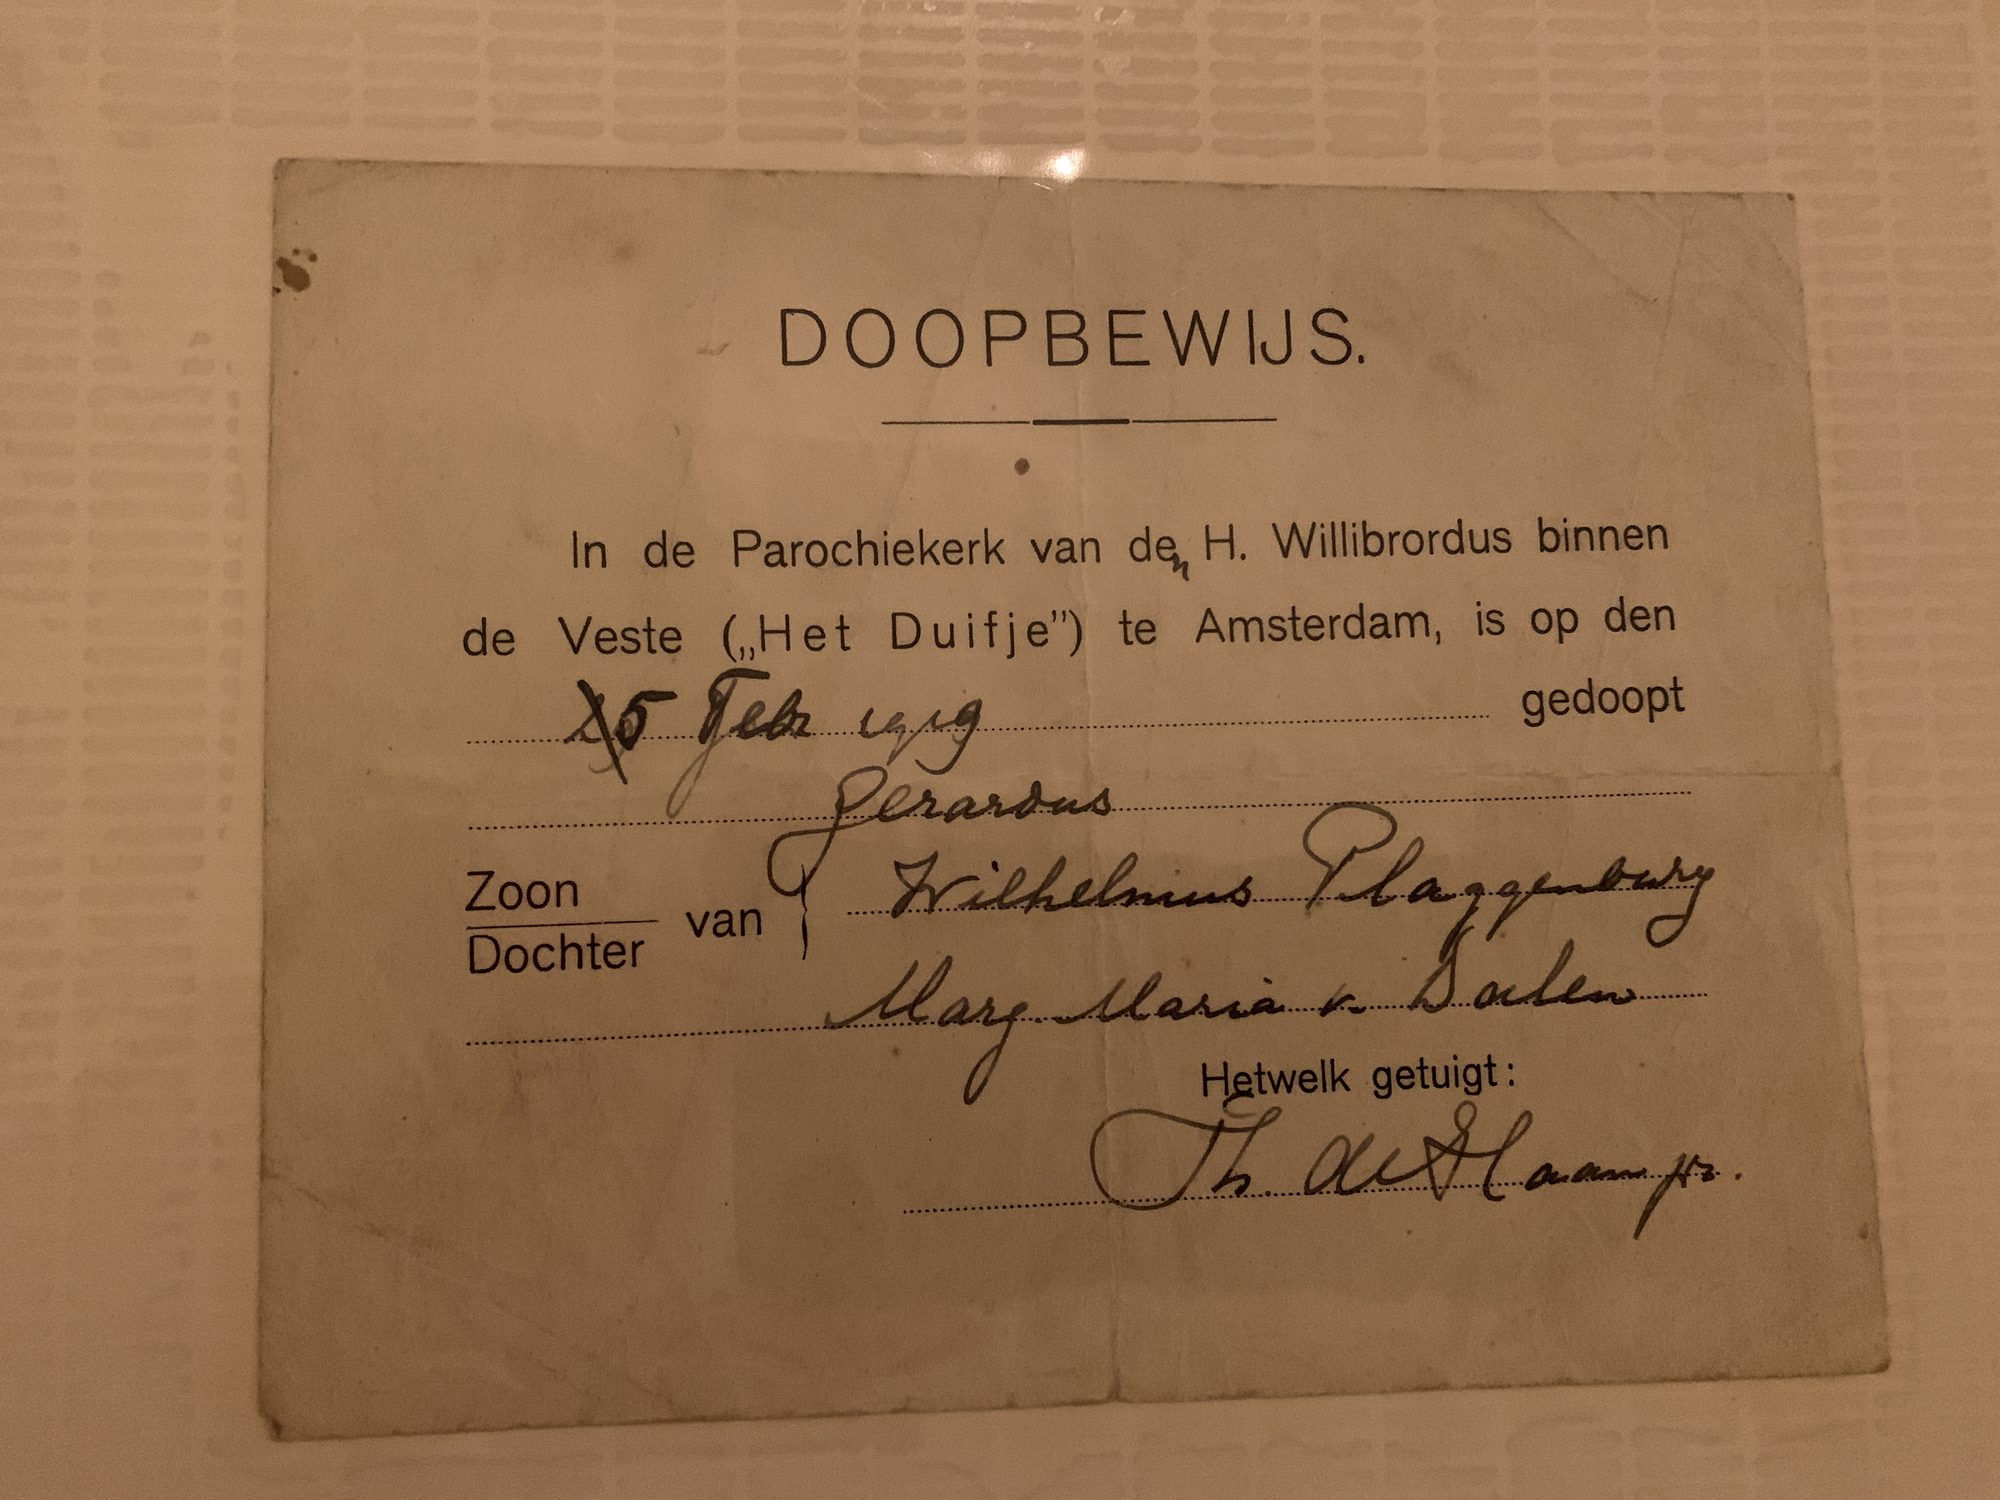 DOOPBEWIJS.
In de Parochiekerk van den H. Willibrordus binnen
de Veste („Het Duifje”) te Amsterdam, is op den
5 Febr 1919 gedoopt
Gerardus
Zoon
Dochter van } Wilhelmus Plaggenburg
Marg. Maria v. Dalen
Hetwelk getuigt:
Th. de Haan pr.